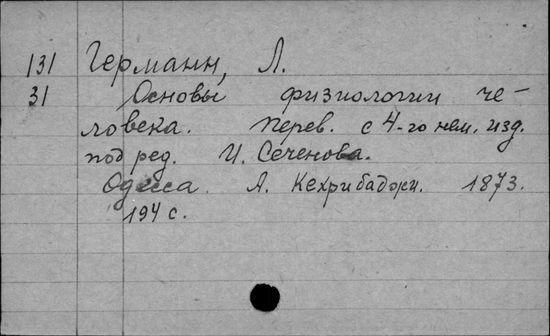 131 Германн, Л.
31 Основы физиологии че-
ловека. Перев. с 4-го нем. изд.
под ред. И. Сеченова.
Одесса. А. Кехрибаджи. 1873.
194 с.